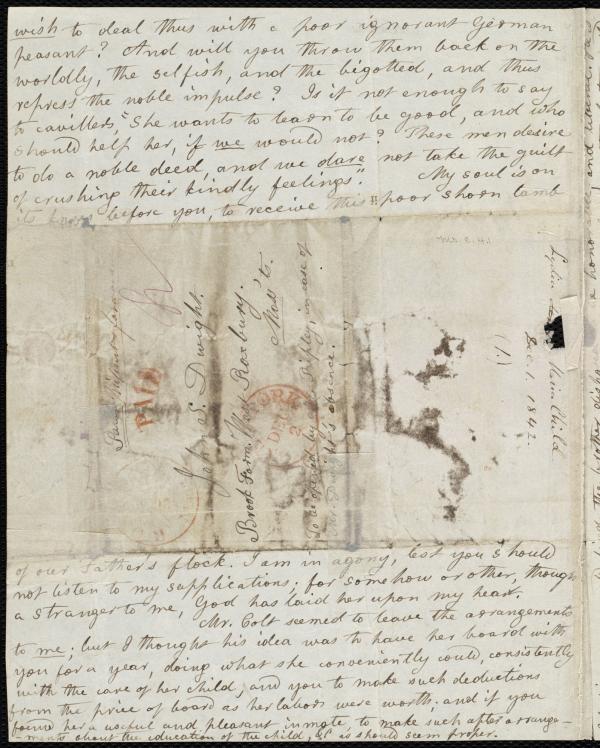 wish to deal thus with a poor ignorant German
peasant? And will you throw them back on the
worldly, the selfish, and the bigotted, and thus
repress the noble impulse? Is it not enough to say
to cavillers, "She wants to learn to be good, and who
should help her, if we would not? These men desire
to do a noble deed, and we dare not take the guilt
of crushing their kindly feelings". My soul is on
its knees before you, to receive this poor shorn lamb
PAID
John S. Dwight.
Brook Farm, West Roxbury.
Mass'ts.
To be opened by Ripley, in case of
Mr. Dwight's absence.
YORK
DEC
2
MS. E. 4.1
Lydia Maria Child
Dec. 1. 1842.
(1.)
of our Father's flock. I am in agony, lest you should
not listen to my supplications; for somehow or other, though
a stranger to me, God has laid her upon my heart.
Mr. Colt seemed to leave the arrangements
to me; but I thought his idea was to have her board with
you for a year, doing what she conveniently could, consistently
with the care of her child, and you to make such deductions
from the price of board as her labors were worth. and if you
found her a useful and pleasant inmate, to make such after arrange-
-ments about the education of the child, &c as should seem proper.